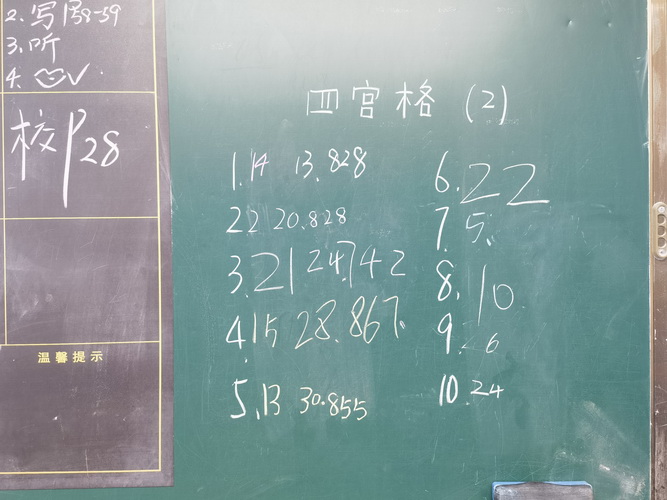 2. 写P58-59
3. 听
4.
校P28
温馨提示
四宫格 (2)
1. 14 13.828
2 2 20.828
3. 21 24.742
4. 15 28.867
5. 13 30.855
6. 22
7. 5
8. 10
9. 26
10. 24